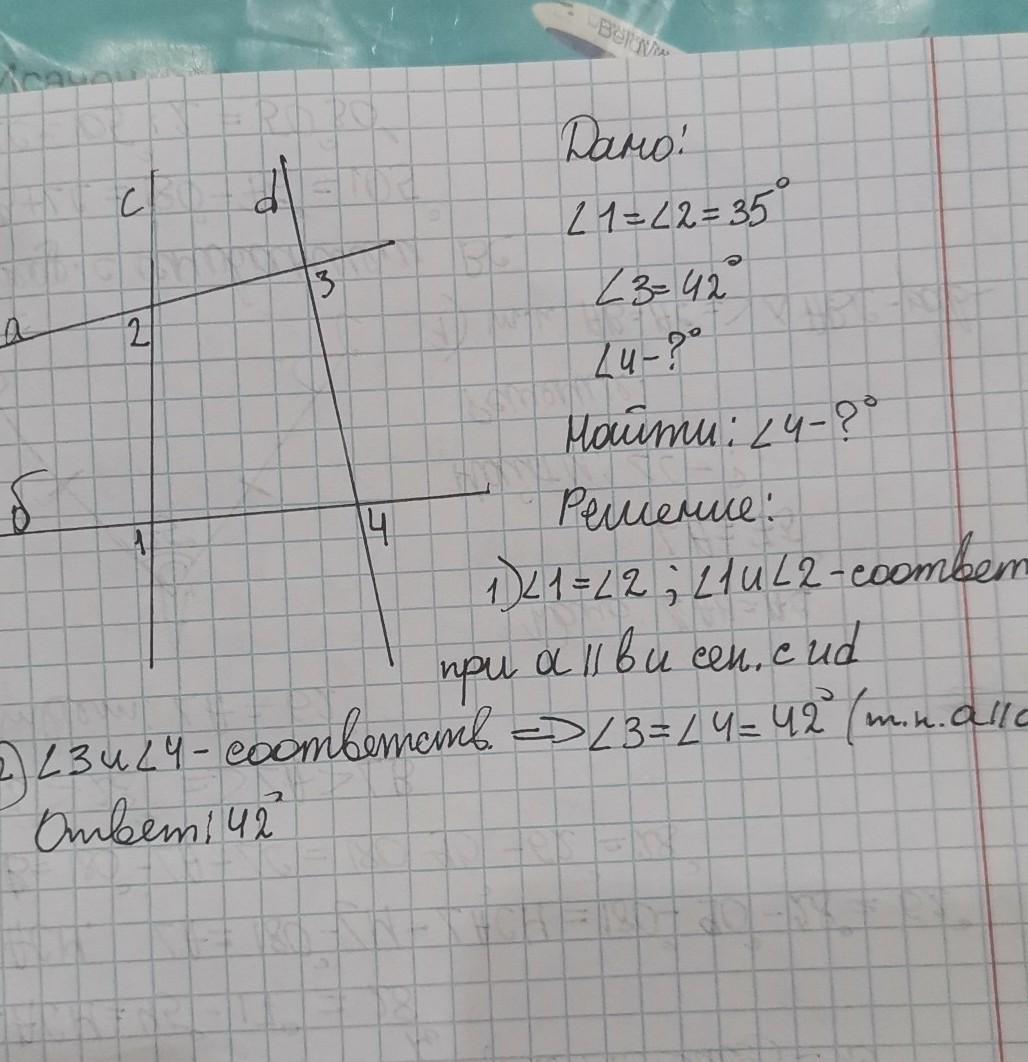 c d
a 2 3
б 1 4
Дано:
∠1=∠2=35°
∠3=42°
∠4-?°
Найти: ∠4-?°
Решение:
1)∠1=∠2; ∠1и∠2-соответ
при a∥b и сек. c иd
2)∠3и∠4-соответств. ⇒∠3=∠4=42° (т.к. a∥
Ответ: 42°